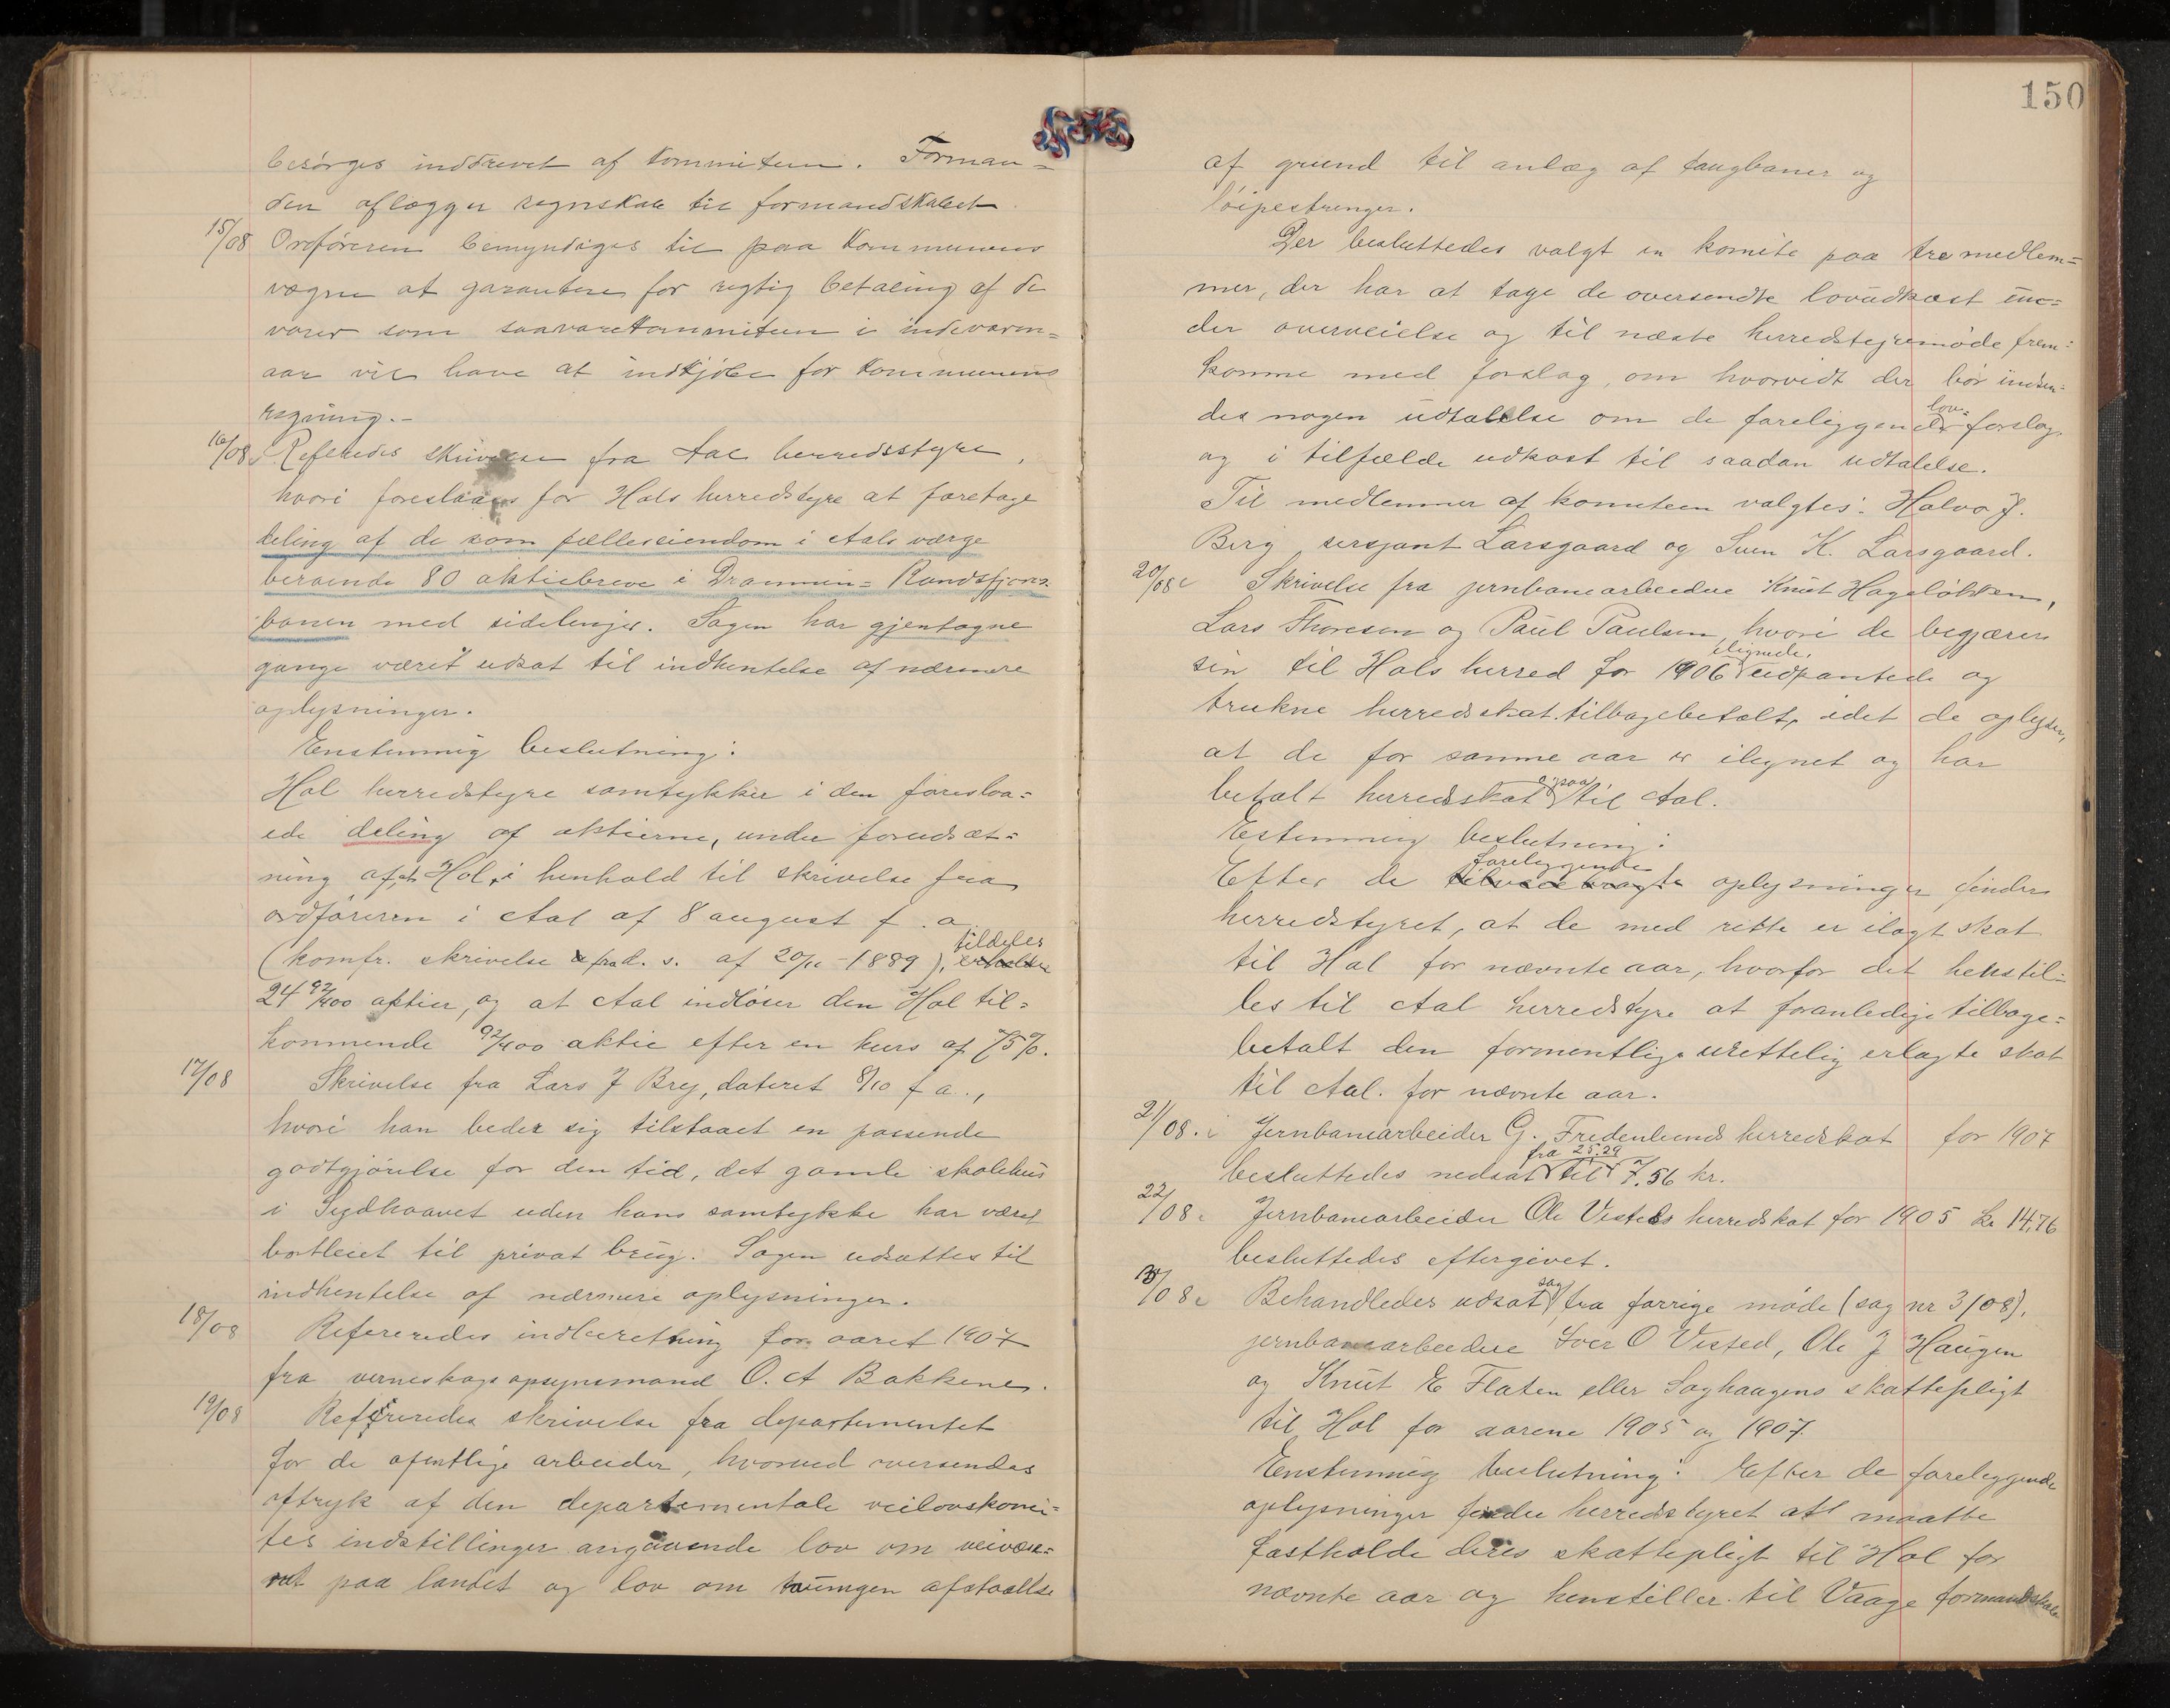 besørges inddrevet af kommiteen. Forman=
den aflægger regnskab til formandskabet.
15/08 Ordføreren bemyndiges til paa kommunens
vegne at garantere for rigtig betaling af de
varer som saavarekommiteen i indeværen=
aar vil have at indkjøbe for kommunens
regning.-
16/08 Refereredes skrivelse fra Aal herredsstyre,
hvori foreslaaes for Hols herredstyre at foretage
deling af de som fælleseiendom i Aals værge
beroende 80 aktiebreve i Drammen= Randsfjord
banen med sidelinjer. Sagen har gjentagne
gange været udsat til indhentelse af nærmere
oplysninger.
Enstemmig beslutning:
Hol herredstyre samtykker i den foresloa=
ede deling af aktierne, under forudsæt=
ning af, at Hol, i henhold til skrivelse fra
ordføreren i Aal af 8 august f. a.
(komfr. skrivelse fra d. s. af 20/11 - 1889), tildeles
24 92/400 aktier, og at Aal indløser den Hol til=
kommende 92/400 aktie efter en kurs af 75%.
17/08 Skrivelse fra Lars J Brey, dateret 8/10 f a.,
hvori han beder sig tilstaaet en passende
godtgjørelse for den tid, det gamle skolehus
i Sydhaavet uden hans samtykke har været
bortleiet til privat brug. Sagen udsattes til
indhentelse af nærmere oplysninger.
18/08 Refereredes indberetning for aaret 1907
fra verneskogsopsynsmand O. A Bakkene.
19/08 Refereredes skrivelse fra departementet
for de ofentlige arbeider, hvorved oversendes
aftryk af den departementale veilovskomi=
tes indstillinger angaaende lov om veivæse=
net paa landet og lov om tvungen afstaaelse
150
af grund til anlæg af taugbaner og
løipestrenger.
Der besluttedes valgt en komite paa tre medlem=
mer, der har at tage de oversendte lovudkast un=
der overveielse og til næste herredstyremøde frem=
komme med forslag, om hvorvidt der bør indsen=
des nogen udtalelse om de foreliggende lov= forslag,
og i tilfælde udkast til saadan udtalelse.
Til medlemmer af komiteen valgtes: Halvor J.
Berg, sersjant Larsgaard og Sven K. Larsgaard.
20/08 Skrivelse fra jernbanearbeidere Knut Hageløkken,
Lars Thoresen og Paul Paulsen, hvori de begjærer
sin til Hols herred for 1906 ilignede, udpantede og
trukne herredsskat tilbagebetalt, idet de oplyser,
at de for samme aar er ilignet og har
betalt herredsskat ogsaa til Aal.
Estemmig beslutning:
Efter de foreliggende oplysninger finder
herredstyret, at de med rette er ilagt skat
til Hol for nævnte aar, hvorfor det henstil=
les til Aal herredstyre at foranledige tilbage=
betalt den formentlige urettelig erlagte skat
til Aal. for nævnte aar.
21/08. Jernbanearbeider G. Fredenlunds herredskat for 1907
besluttedes nedsat fra 25,29 til 7,56 kr.
22/08 Jernbanearbeider Ole Visteds herredskat for 1905 kr 14,76
besluttedes eftergivet.
3/08 Behandledes udsat sag fra forrige møde (sag nr 3/08),
jernbanearbeidere Iver O Visted, Ole J Haugen
og Knut E Flaten eller Saghaugens skattepligt
til Hol for aarene 1905 og 1907.
Enstemmig beslutning: Efter de foreliggende
oplysninger finder herredstyret at maatte
fastholde deres skattepligt til Hol for
nævnte aar og henstiller til Vaage formandskab